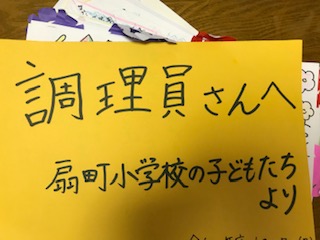 調理員さんへ
扇町小学校の子どもたち
より